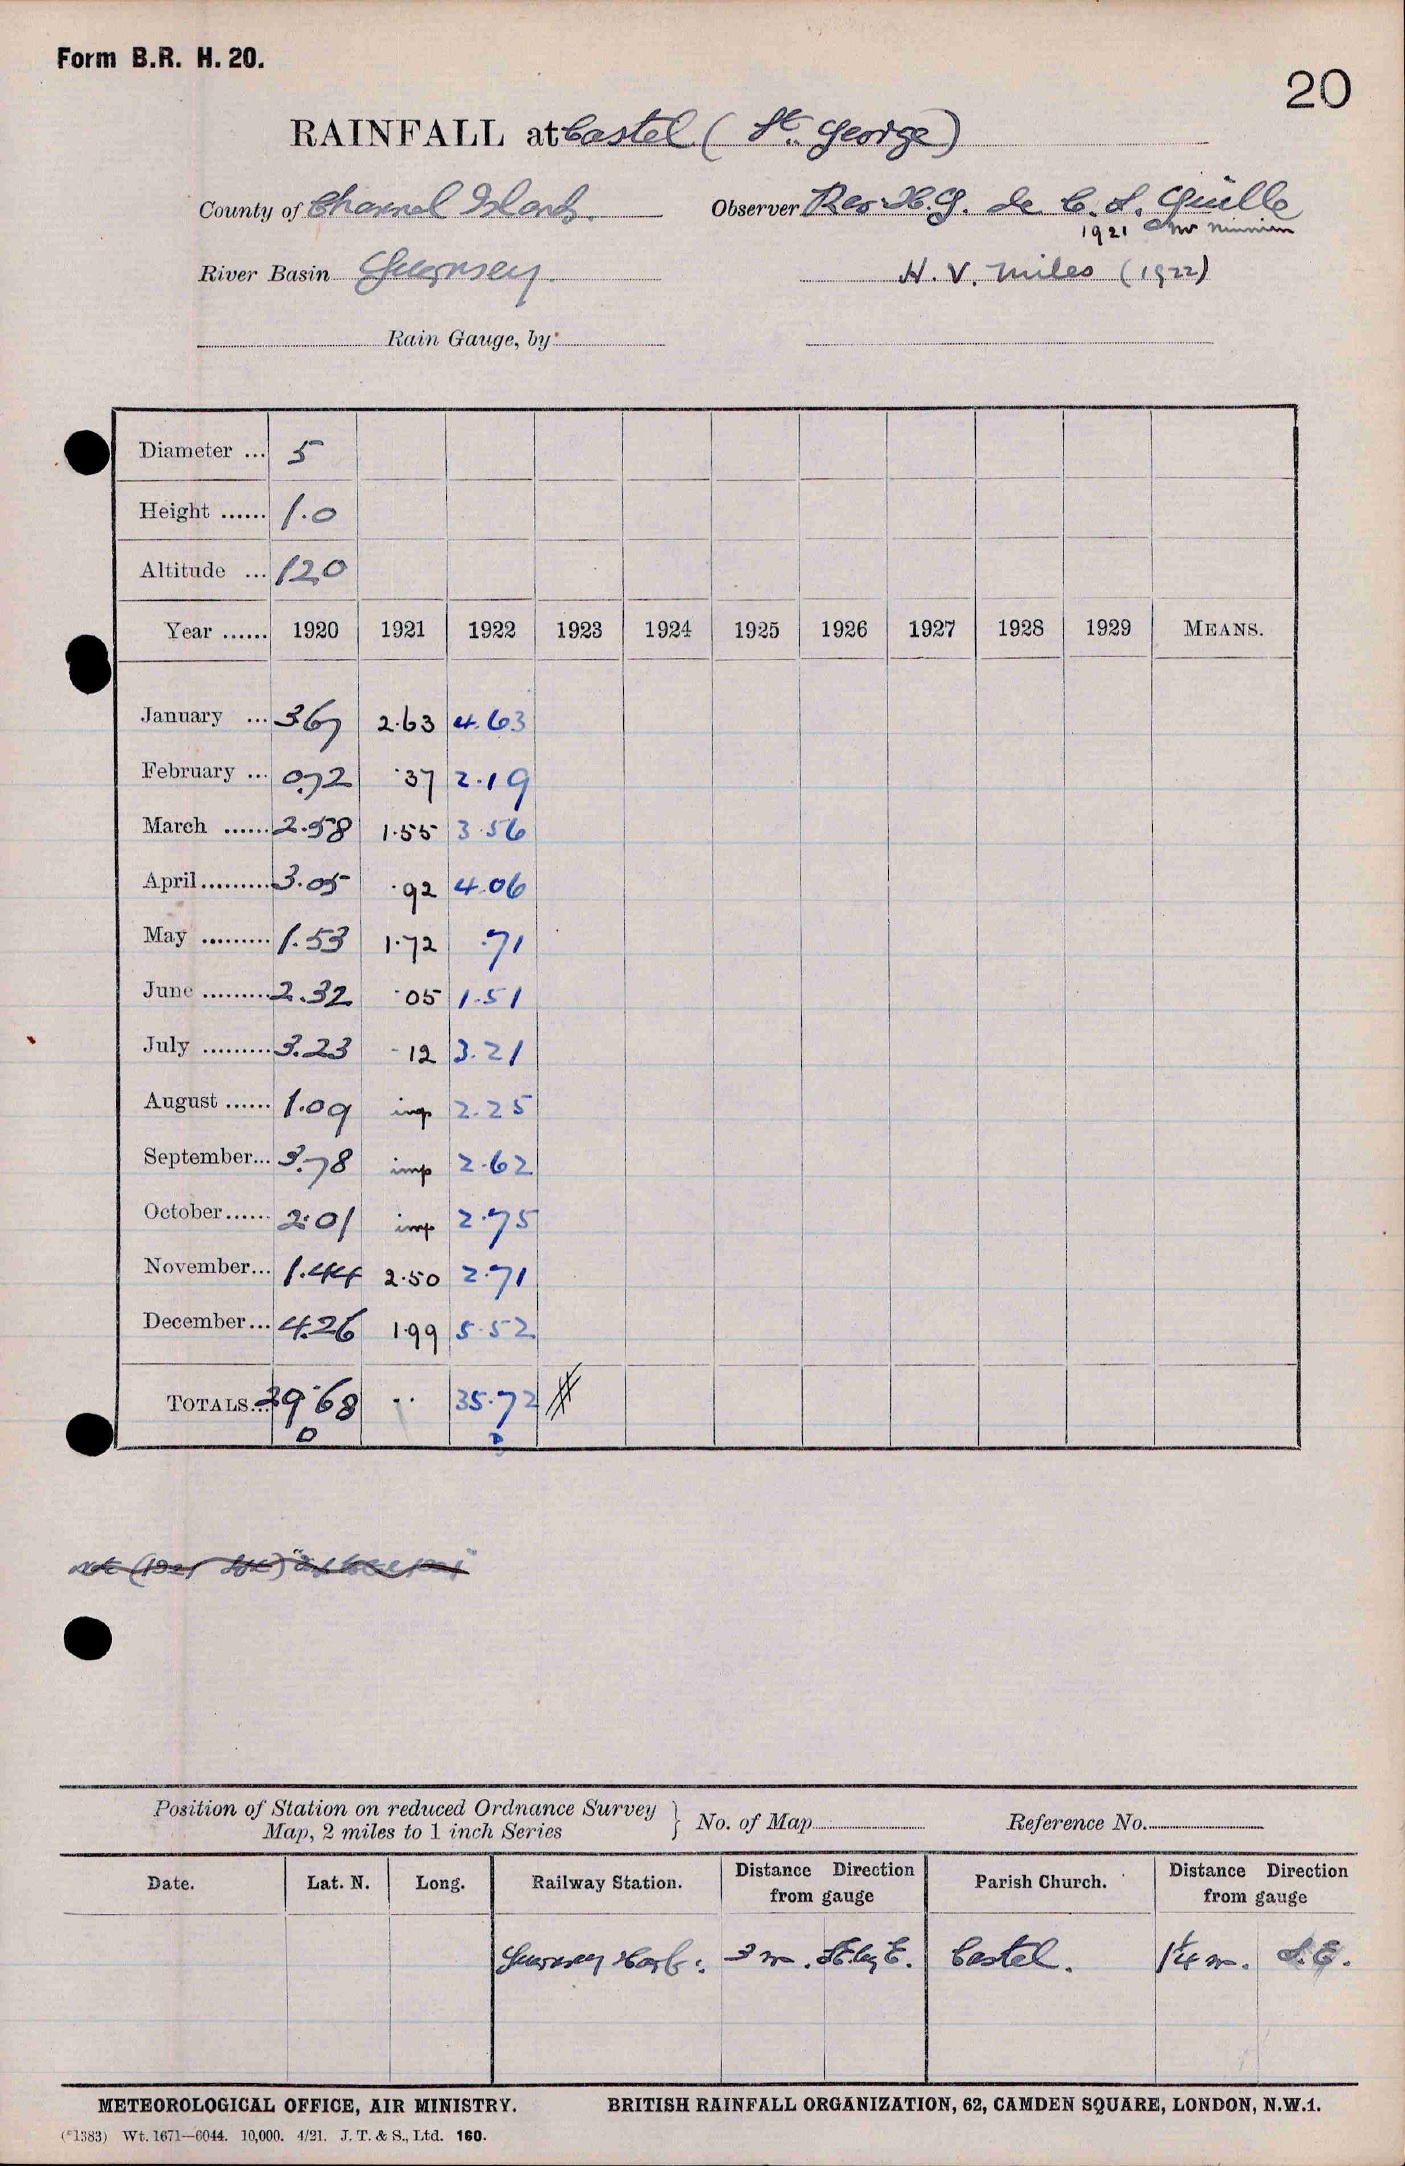 Form B.R. H. 20.
20
RAINFALL at Castel (St. George)
County of Channel Islands. Observer Rev. H.G. de C. S. Guille
1921
River Basin Guernsey. H. V. Miles (1922)
Rain Gauge, by
Diameter ... 5
Height ...... 1.0
Altitude ... 120
Year ...... 1920 1921 1922 1923 1924 1925 1926 1927 1928 1929 MEANS.
January ... 3.67 2.63 4.63
February ... 0.72 .37 2.19
March ...... 2.58 1.55 3.56
April ......... 3.05 .92 4.06
May ......... 1.53 1.72 .71
June ......... 2.32 .05 1.51
July ......... 3.23 .12 3.21
August ...... 1.09 imp 2.25
September... 3.78 imp 2.62
October...... 2.01 imp 2.75
November... 1.44 2.50 2.71
December... 4.26 1.99 5.52
TOTALS... 29.68 .. 35.72
D D
Position of Station on reduced Ordnance Survey
Map, 2 miles to 1 inch Series } No. of Map Reference No.
Date. Lat. N. Long. Railway Station. Distance Direction from gauge Parish Church. Distance Direction from gauge
Guernsey Harb. 3 m. SE by E. Castel. 1¼ m. S.E.
METEOROLOGICAL OFFICE, AIR MINISTRY. BRITISH RAINFALL ORGANIZATION, 62, CAMDEN SQUARE, LONDON, N.W.1.
(*1383) Wt. 1671—6044. 10,000. 4/21. J. T. & S., Ltd. 160.